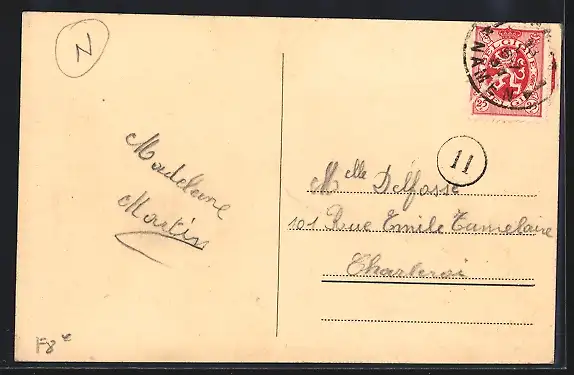 N
BELGIQUE
NAMEN
25
25
BELGIË
11
Madeleine
Martin
Melle Delfosse
101 Rue Emile Tumelaire
Charleroi
F8